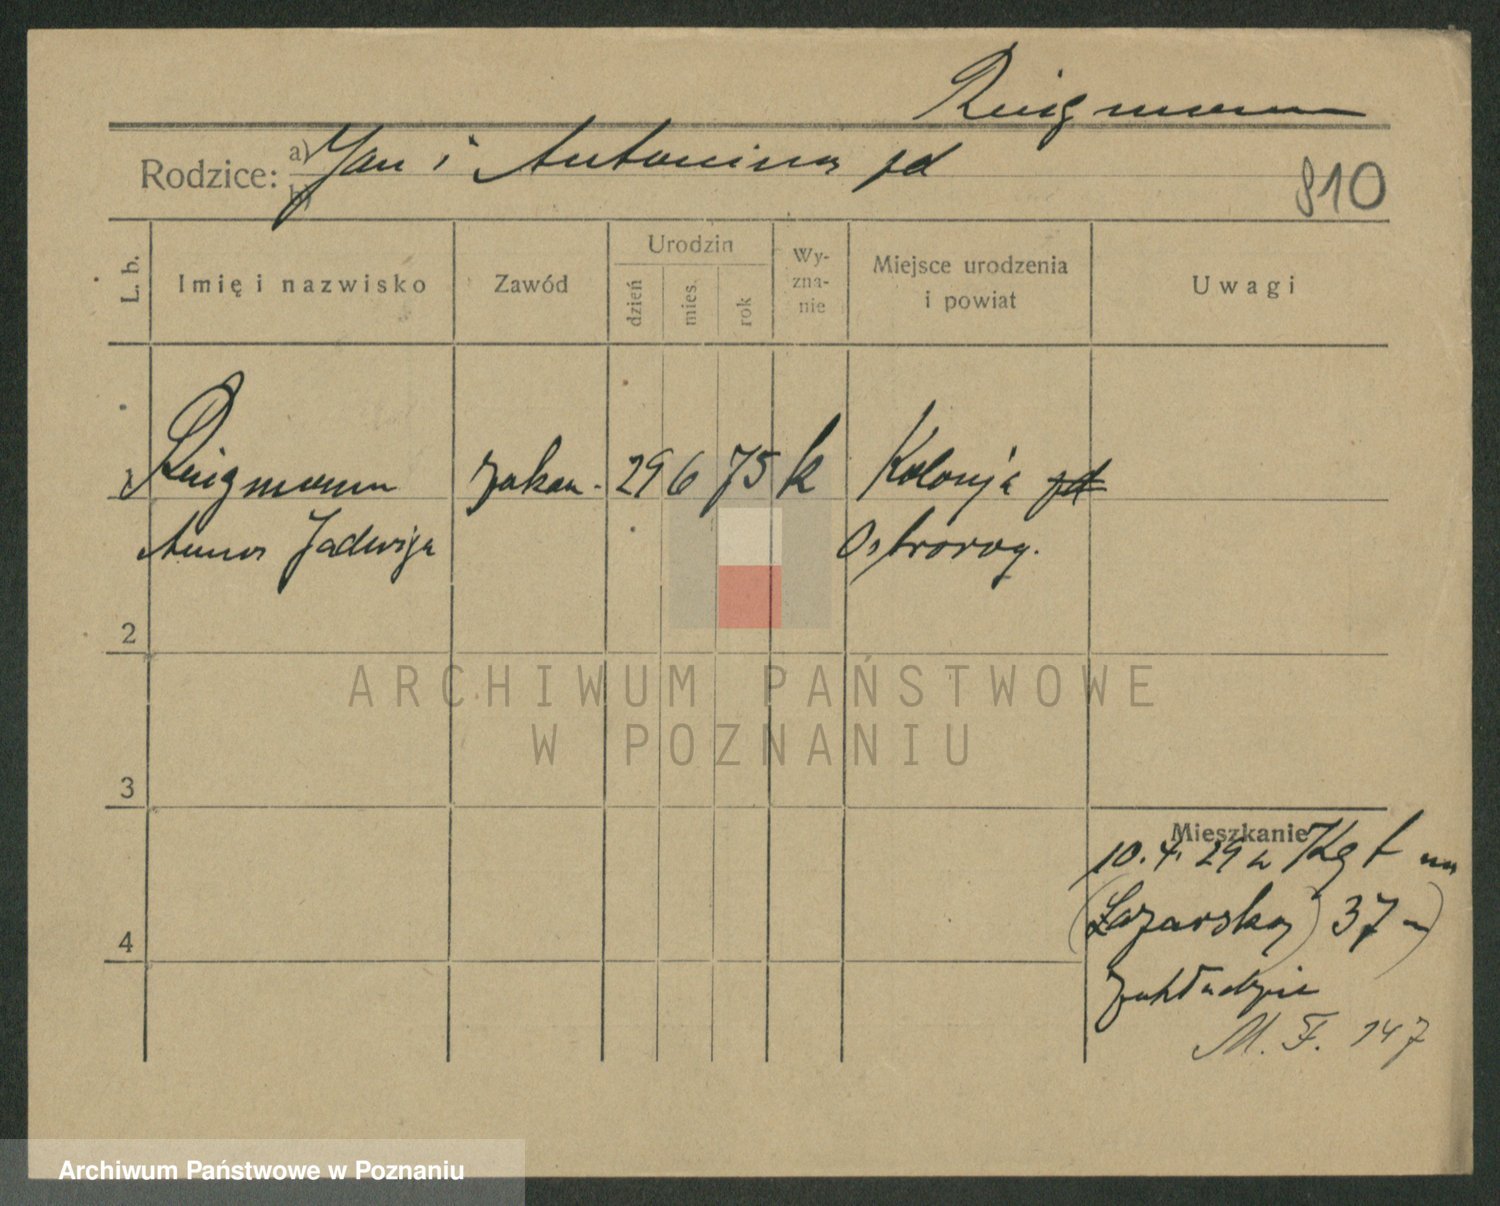 Ruigmann
Rodzice: a) Jan i Antonina
b)
810
L. b.
Imię i nazwisko
Zawód
Urodzin
dzień
mies.
rok
Wy-
zna-
nie
Miejsce urodzenia
i powiat
Uwagi
Ruigmann zakon. 29 6 75 k Kolonja
Anna Jadwiga Ostroróg.
2
3
4
Mieszkanie
10. 4. 29
(Łazarska) 37
zakładzie
M. F. 147
ARCHIWUM PAŃSTWOWE
W POZNANIU
Archiwum Państwowe w Poznaniu